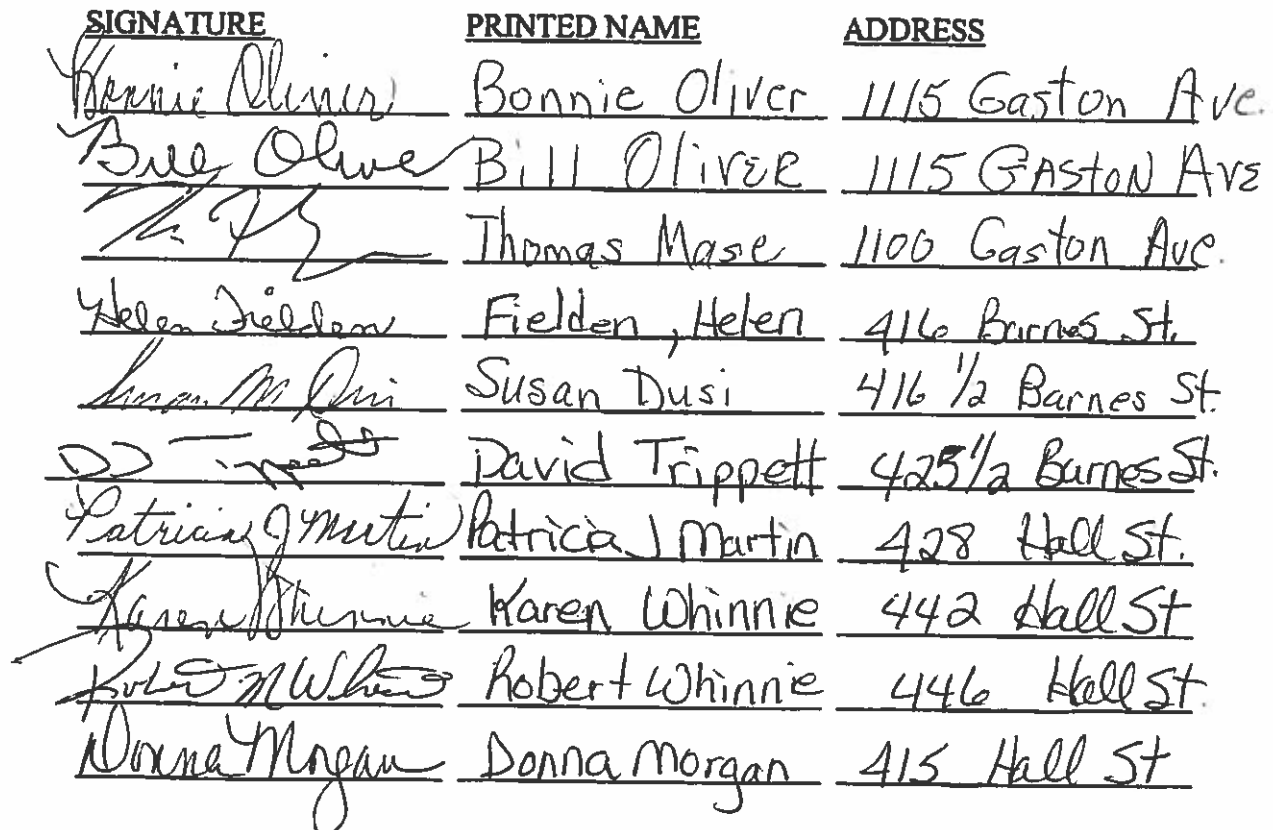 SIGNATURE PRINTED NAME ADDRESS
Bonnie Oliver Bonnie Oliver 1115 Gaston Ave.
Bill Oliver Bill OliVER 1115 GAStoN AvE
Thomas Mase 1100 Gaston Ave.
Helen Fielden Fielden, Helen 416 Barnes St.
Susan M Dusi Susan Dusi 416 1/2 Barnes St.
David Trippett 425 1/2 Barnes St.
Patricia J Martin Patricia J Martin 428 Hall St.
Karen Whinnie Karen Whinnie 442 Hall St
Robert M Whinnie Robert Whinnie 446 Hall St.
Donna Morgan Donna Morgan 415 Hall St